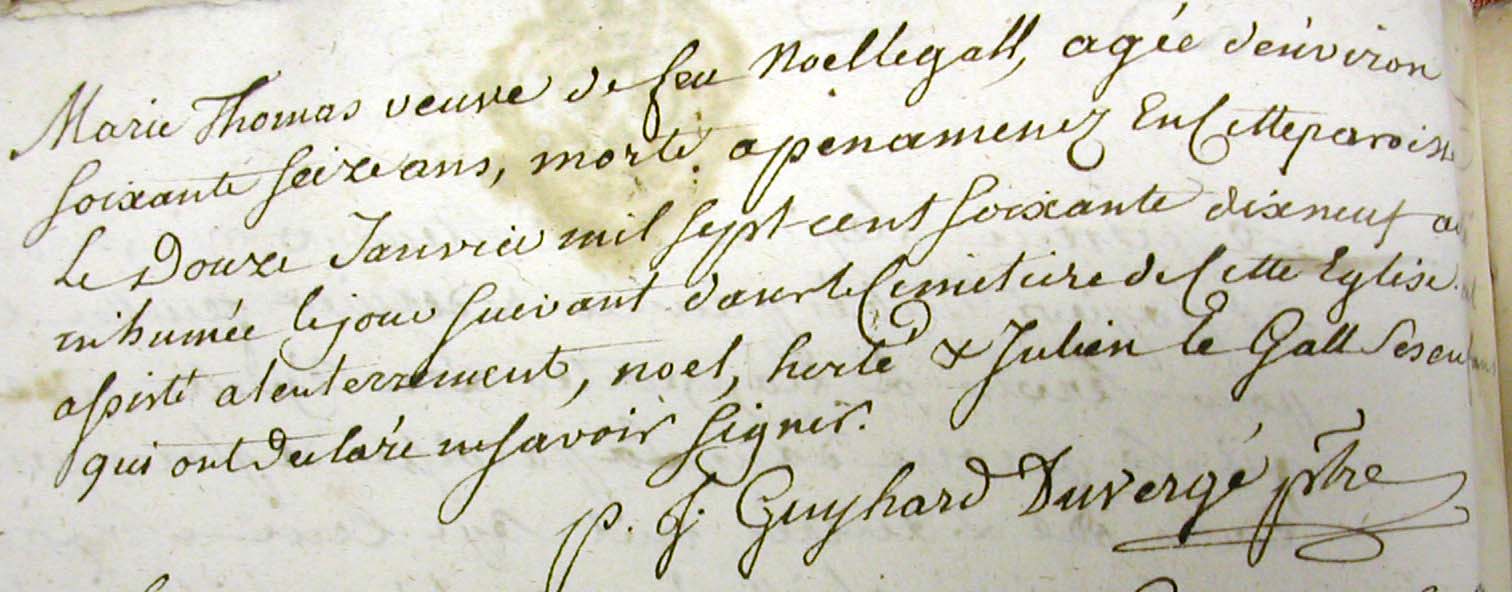 Marie Thomas veuve de feu Noel le gall, agée d'environ
soixante seize ans, morte a penamenez En Cette paroisse
Le Douze Janvier mil sept cent soixante dix neuf a
inhumée le jour suivant dans le Cimetiere de Cette Eglise.
assisté a l'enterrement, noel, herlé & Julien le Gall ses en
qui ont declaré ne savoir signer.
p. J. Guyhard Duvergé ptre